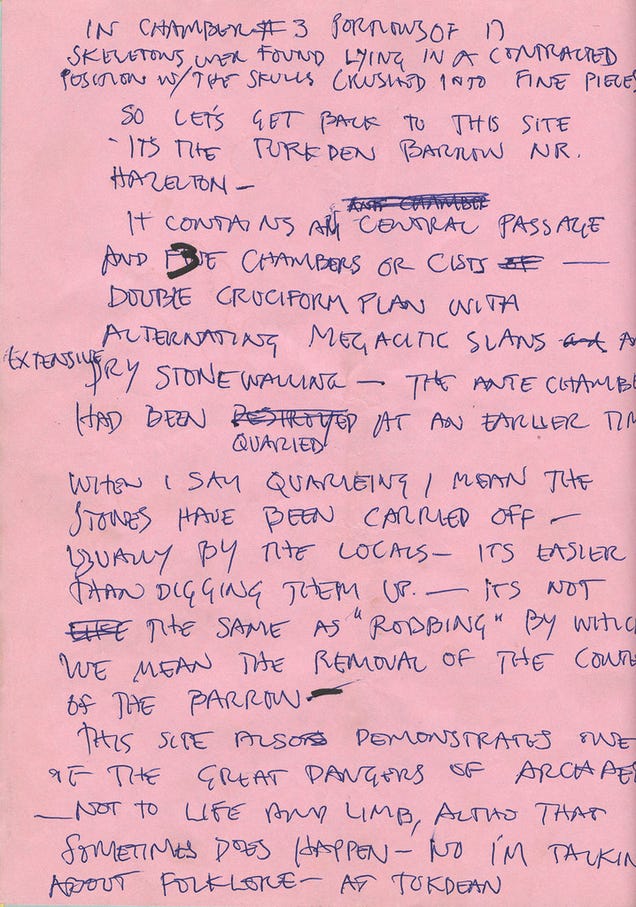 IN CHAMBER # 3 PORTIONS OF 17
SKELETONS WER FOUND LYING IN A CONTRACTED
POSITION W/ THE SKULLS CRUSHED INTO FINE PIECES
SO LET'S GET BACK TO THIS SITE
- ITS THE TURKDEN BARROW NR.
HAZELTON —
ANTE CHAMBER
IT CONTAINS A CENTRAL PASSAGE
AND 3 CHAMBERS OR CISTS OF —
DOUBLE CRUCIFORM PLAN WITH
ALTERNATING MEGALITIC SLANS and A
EXTENSIVE
DRY STONEWALLING — THE ANTE CHAMBE
HAD BEEN DESTROYED AT AN EARLIER TIM
QUARIED
WHEN I SAY QUARREING I MEAN THE
STONES HAVE BEEN CARRIED OFF —
USUALLY BY THE LOCALS — ITS EASIER
THAN DIGGING THEM UP. — ITS NOT
LIKE THE SAME AS "ROBBING" BY WHICH
WE MEAN THE REMOVAL OF THE CONTE
OF THE BARROW —
THIS SITE ALSO DEMONSTRATES ONE
OF THE GREAT DANGERS OF ARCHAEO
— NOT TO LIFE AND LIMB, ALTHO THAT
SOMETIMES DOES HAPPEN — NO I'M TALKIN
ABOUT FOLKLORE — AT TUKDEAN